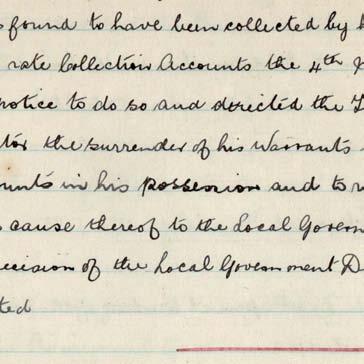 s found to have been collected by
rate Collection Accounts the 4th
notice to do so and directed the
tor the surrender of his Warrants
ounts in his possession and to
cause thereof to the Local Govern
ecision of the Local Government D
ted